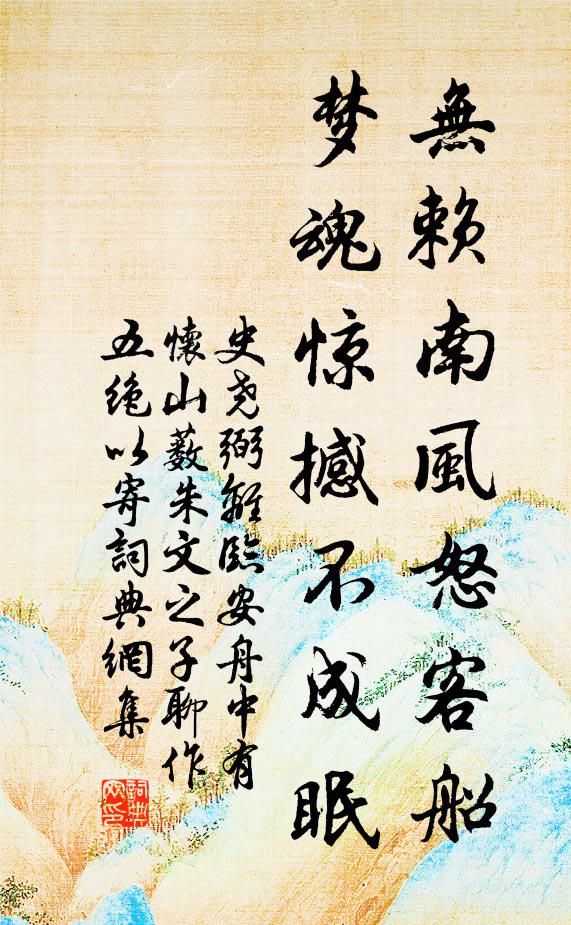 無賴南風怒客船
梦魂惊撼不成眠
史尧弼離臨安舟中有
懷山薮朱文之子聊作
五绝以寄詞典網集
詞典網印